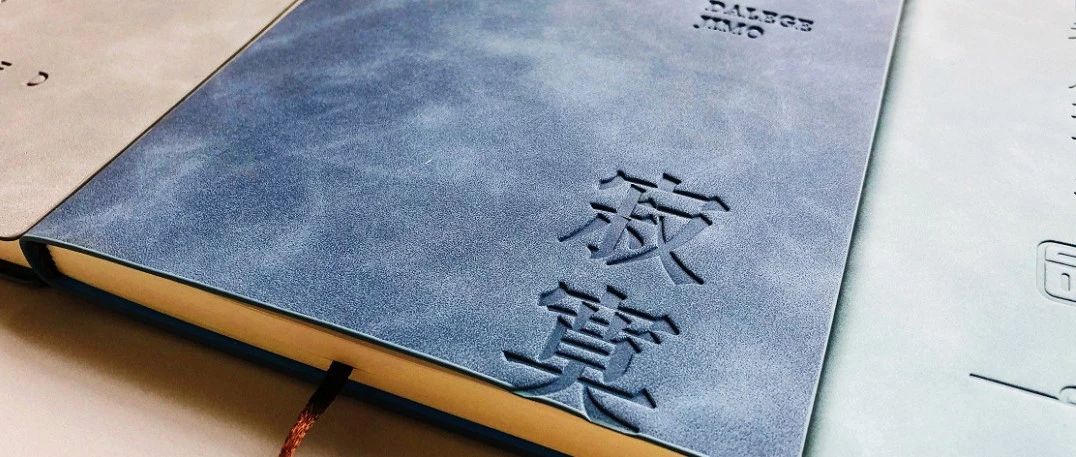 DALEGE
JIMO
寂
寞